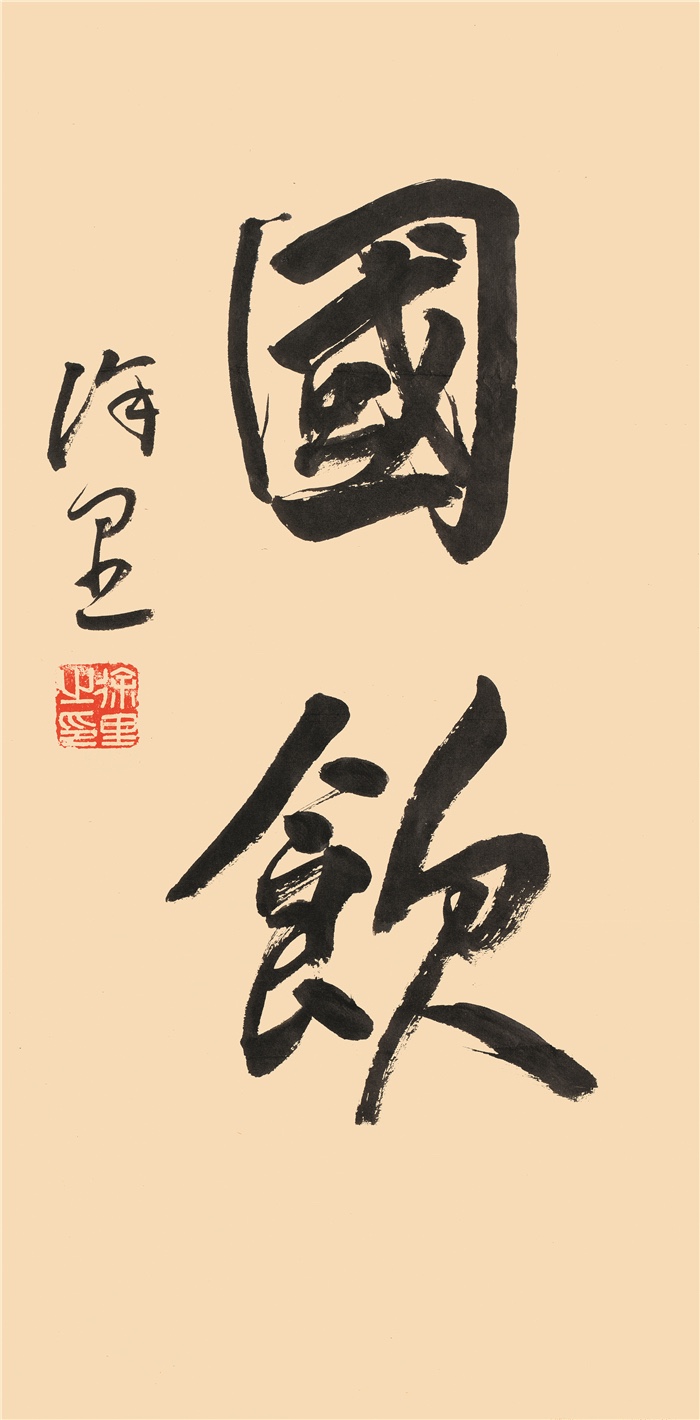 國飲
徐里
徐里之印